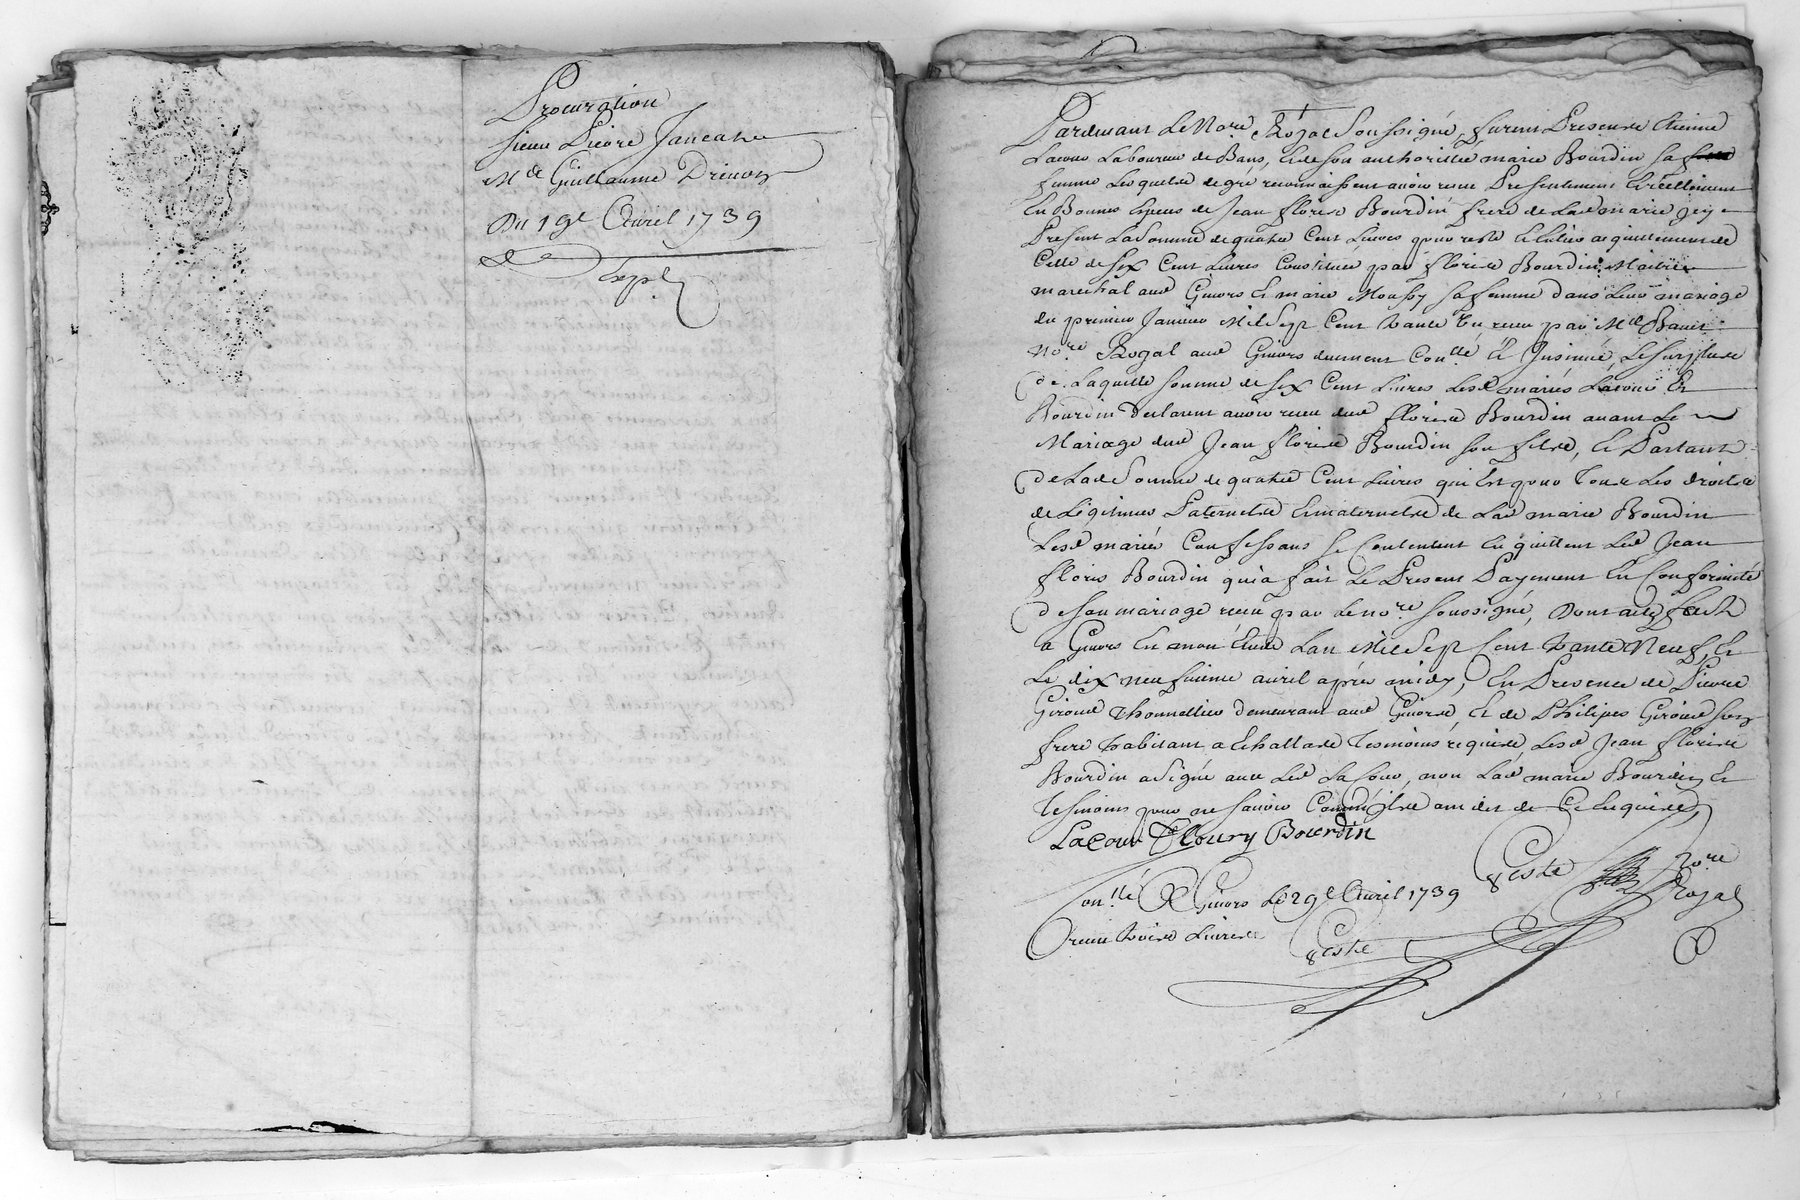 Procuration
sieur Pierre Jancah
Md Guillaume Drevon
Du 19e Avril 1739
Expl
Pardevant Le Nore Royal Soussigné, furent Presents Etienne
Lacour Laboureur de Bans, et de son authorité marie Bourdin sa
femme Lesquels de gré reconnoissent avoir receu Presentement et réellement
En Bonnes Especes de Jean floris Bourdin frere de Lad marie icy
Present La Somme de quatre Cent Livres pour reste et Entier acquittement de
Celle de Six Cent Livres Constituée par floris Bourdin Maitre
marechal aud Givors et marie Moussy sa femme dans Leur mariage
du premier Janvier Mil Sept Cent trante Un receu par Me
Nore Royal aud Givors duement Conllé et Insinué, Le Surplus
de Laquelle somme de Six Cent Livres Lesd mariés Lacour et
Bourdin declarent avoir receu dud floris Bourdin avant Le
Mariage dud Jean floris Bourdin son fils, et Partant
de Lad Somme de quatre Cent Livres qui Est pour Tous Les droits
de Légitimes Paternels et maternels de Lad marie Bourdin
Lesd mariés Confessans se Contentent En quittent Led Jean
floris Bourdin qui a fait Le Present Payement En Conformité
de son mariage receu par Le nore soussigné, Dont acte fait
a Givors En mon Etude L'an Mil Sept Cent trante Neuf, Et
Le dix neufvieme avril après midy, En Presence de Pierre
Giroud Thonnellier demeurant aud Givors, et de Philipes Giroud son
frere habitant a Echallas Tesmoins requis, Lesd Jean floris
Bourdin a signé avec Led Lacour, non Lad marie Bourdin et
Tesmoins pour ne savoir Comme ils ont dit de Ce Enquis
Lacour Floury Bourdin
Teste Nore
Royal
Conllé A Givors Le 29e Avril 1739
receu trois Livres
Teste